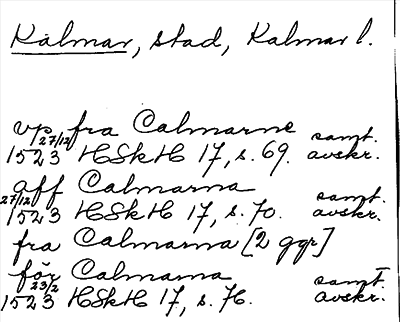 Kalmar, stad, Kalmar l.
vp fra Calmarne
27/12 1523 HSkH 17, s. 69. samt. avskr.
aff Calmarna
27/12 1523 HSkH 17, s. 70. samt. avskr.
fra Calmarna [2 ggr]
för Calmarna
23/2 1523 HSkH 17, s. 76. samt. avskr.